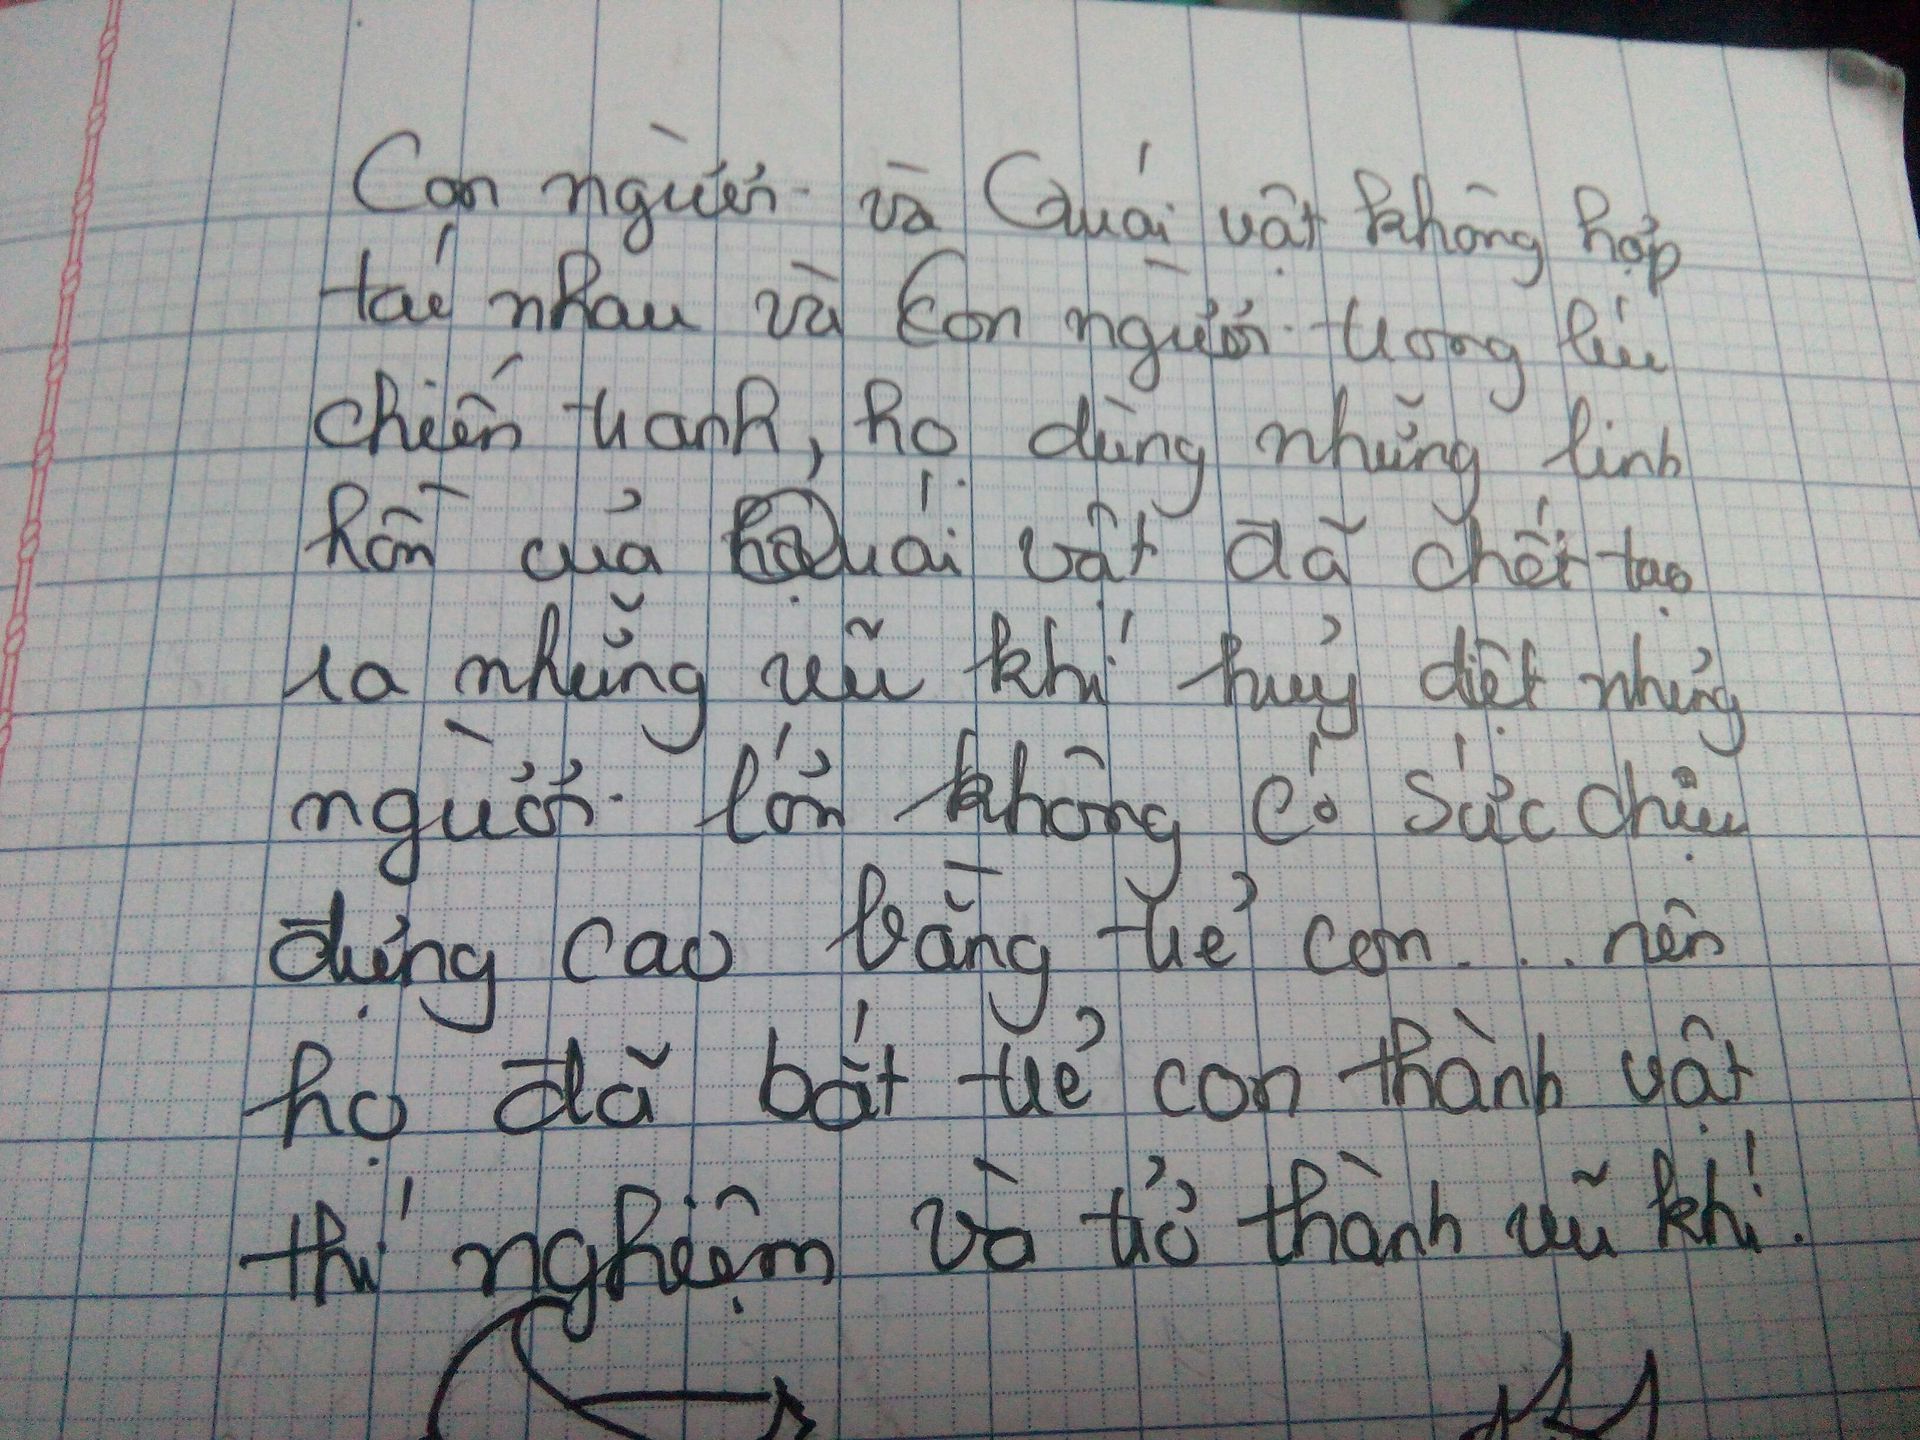 Con người và Quái vật không hợp
tác nhau và Con người trong lúc
chiến tranh, họ dùng những linh
hồn của Quái vật đã chết tạo
ra những vũ khí huỷ diệt những
người lớn không có sức chịu
đựng cao bằng trẻ con... nên
họ đã bắt trẻ con thành vật
thí nghiệm và trở thành vũ khí.